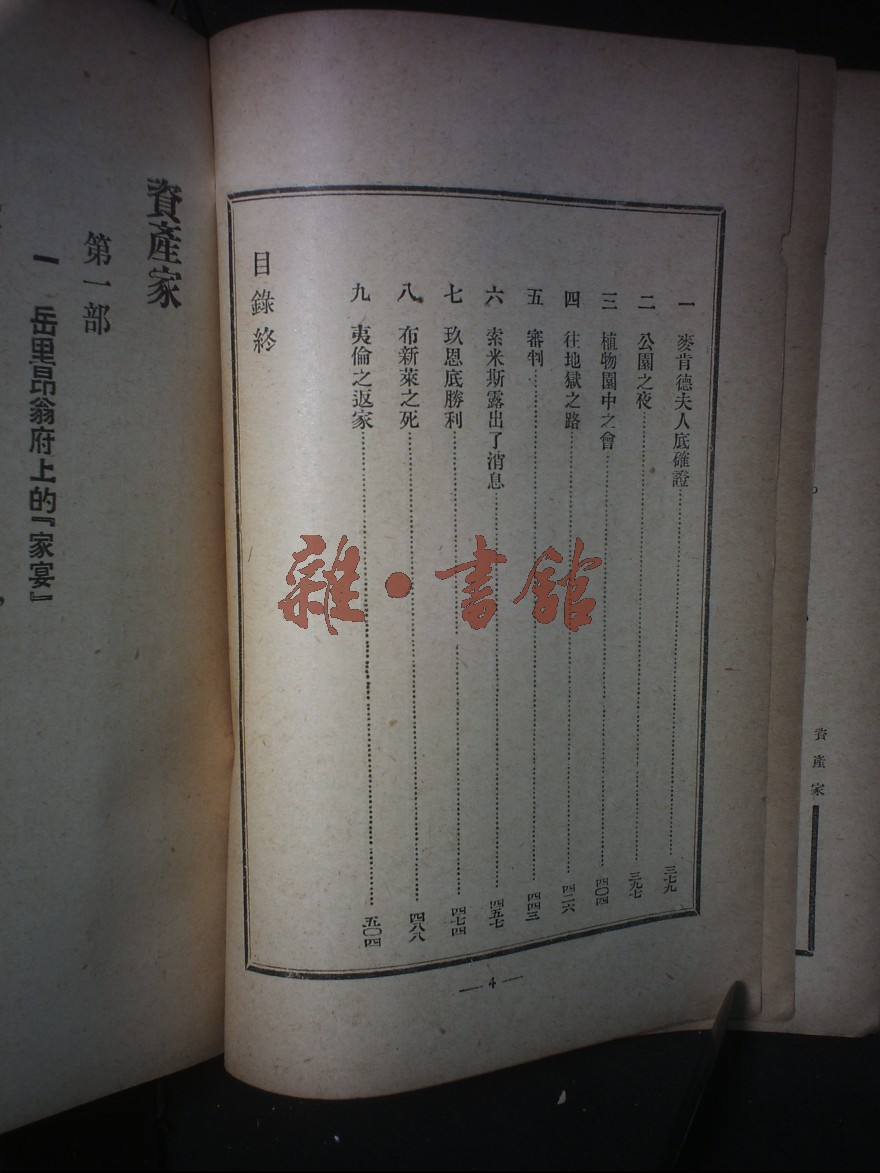 資產家
一 麥肯德夫人底確證 三七九
二 公園之夜 三九七
三 植物園中之會 四〇四
四 往地獄之路 四二六
五 審判 四四三
六 索米斯露出了消息 四五七
七 玖恩底勝利 四七四
八 布新萊之死 四八八
九 夷倫之返家 五〇四
目錄終
— 4 —
雜·書館
資產家
第一部
一 岳里昂翁府上的『家宴』